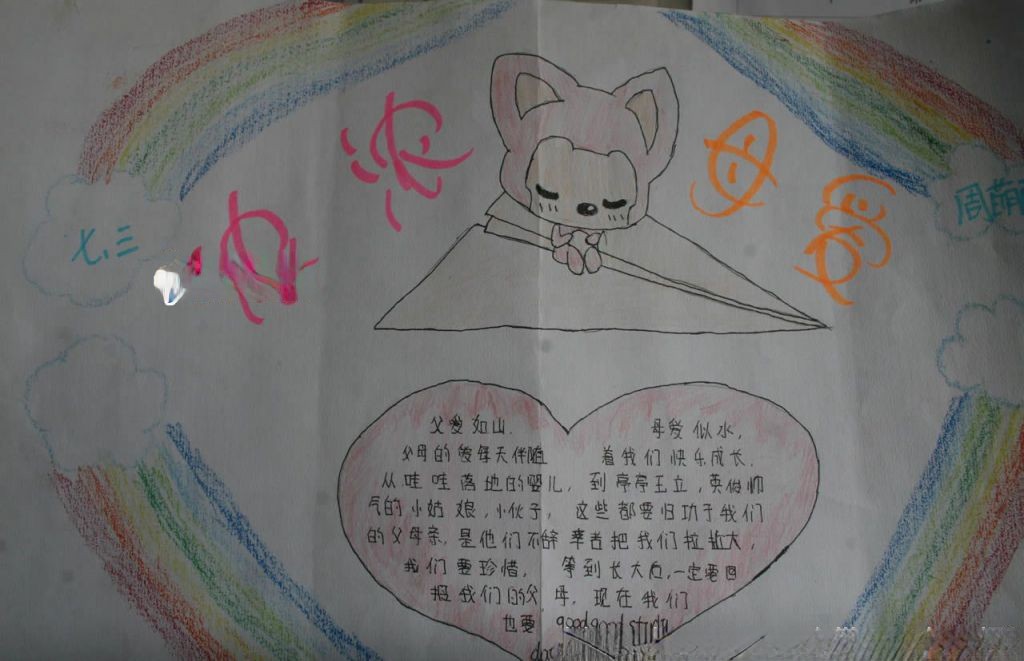 七.三
浓 母 爱
周萌
父爱如山. 母爱似水,
父母的爱每天伴随着我们快乐成长.
从哇哇落地的婴儿,到亭亭玉立,英俊帅
气的小姑娘,小伙子,这些都要归功于我们
的父母亲,是他们不辞辛苦把我们拉扯大,
我们要珍惜,等到长大后,一定要回
报我们的父母,现在我们
也要 good good study